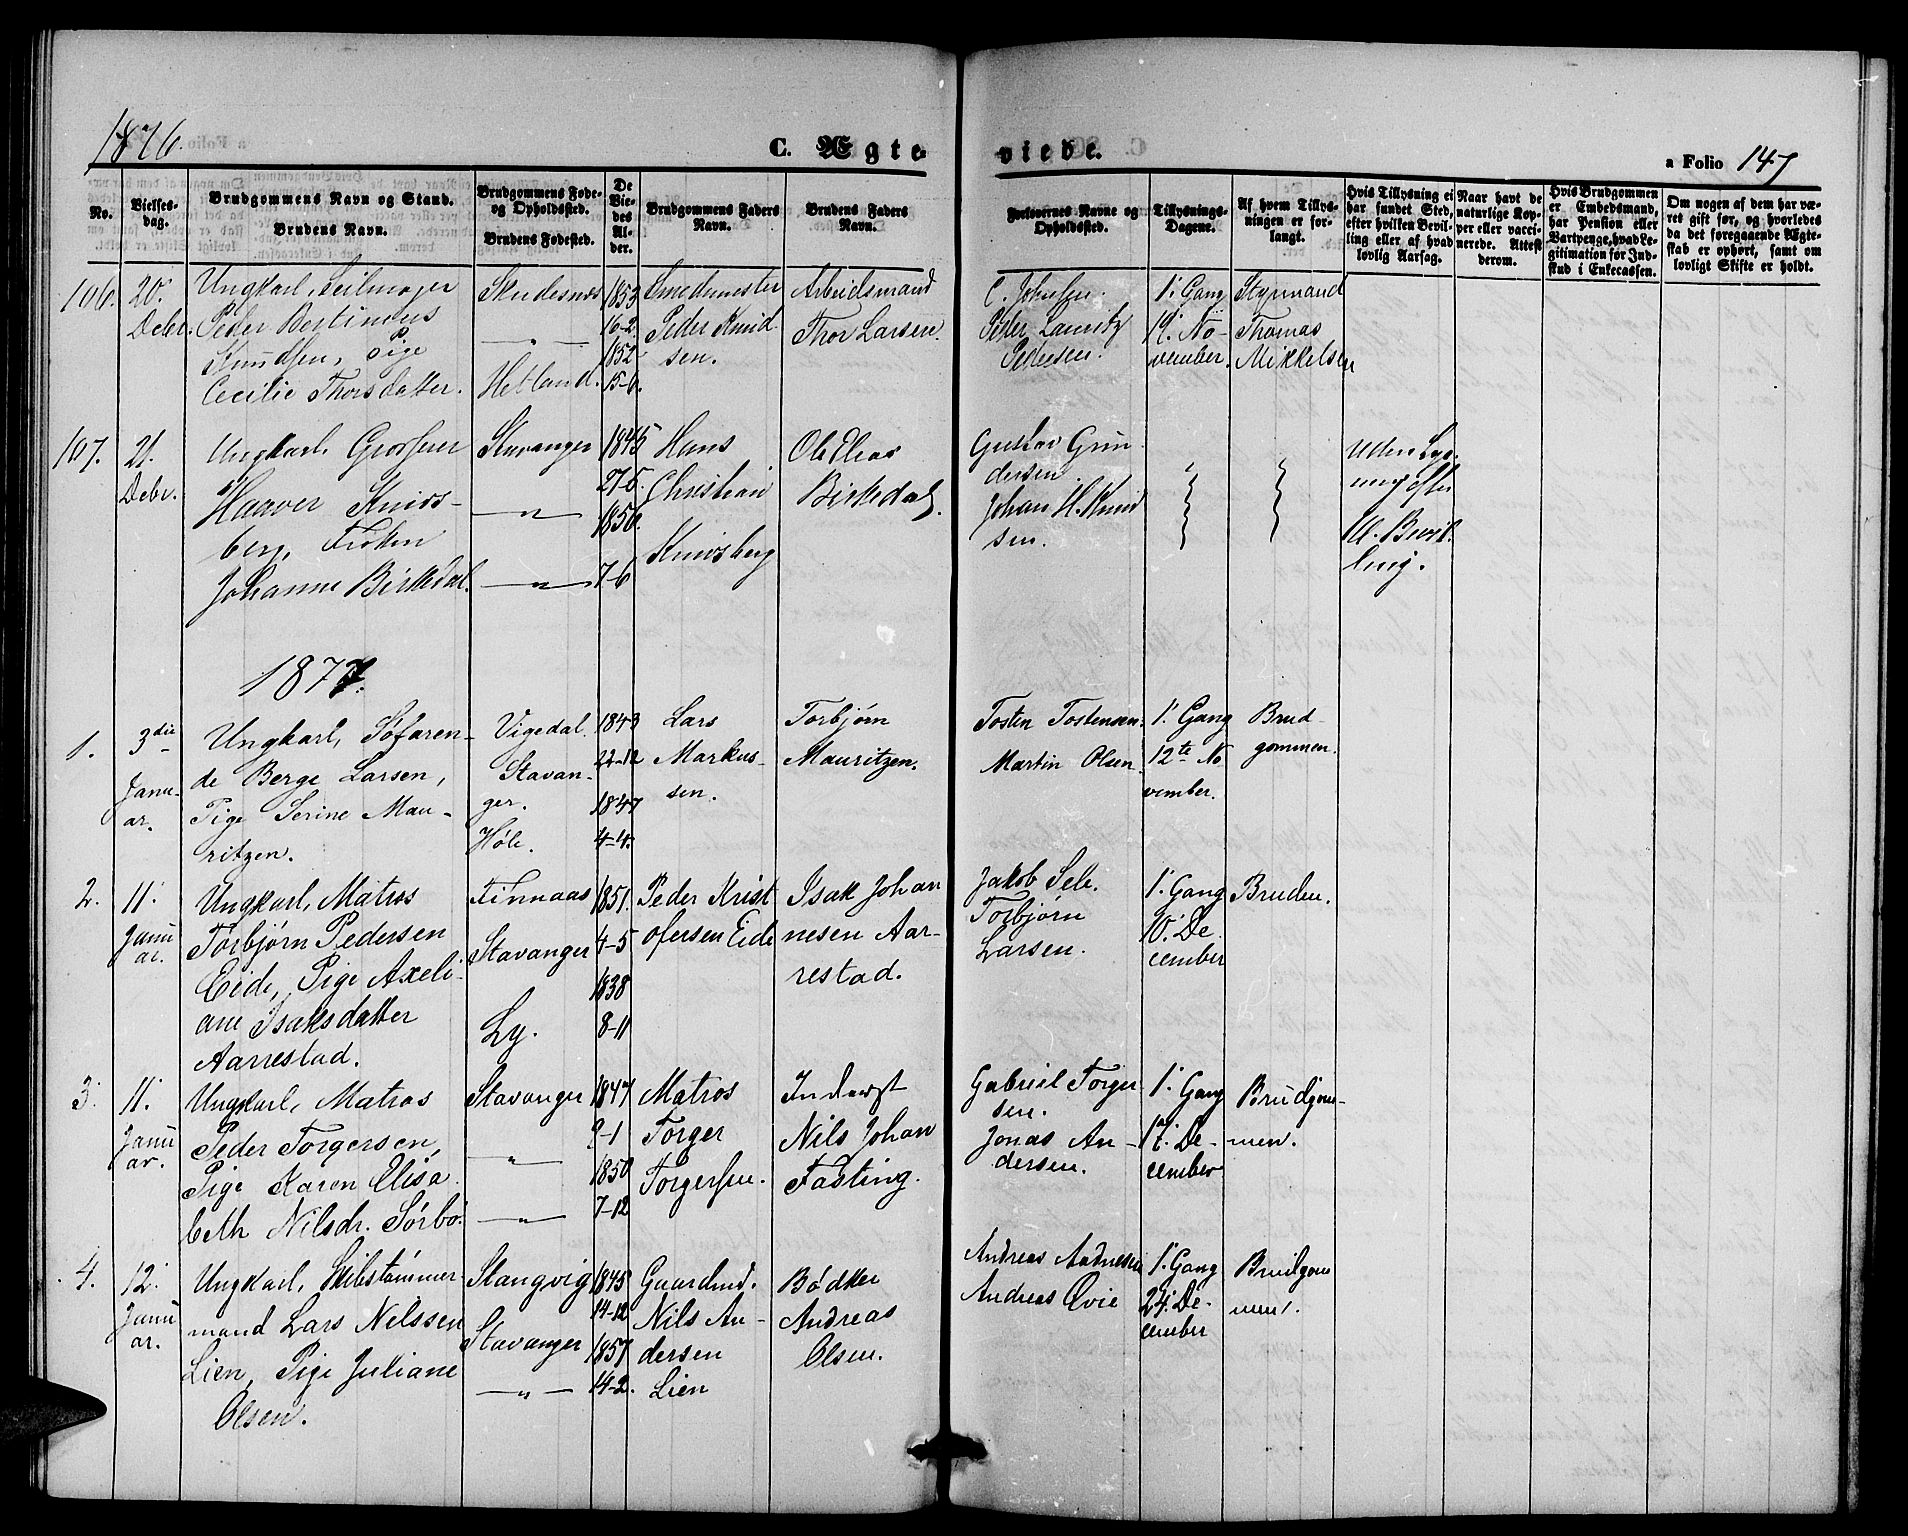 1876.
C. Ægte
viede.
a Folio 147
No.
Vielses-
dag.
Brudgommens Navn og Stand.
Brudens Navn.
Brudgommens Føde-
og Opholdssted.
Brudens Fødested.
De
Vie-
des
Al-
der.
Brudgommens Faders
Navn.
Brudens Faders
Navn.
Forlovernes Navne og
Opholdssted.
Tillysnings-
Dagene.
Af hvem Tillys-
ningen er for-
langt.
Hvis Tillysning ei
har fundet Sted,
efter hvilken Bevil-
ling eller af hvad
lovlig Aarsag.
Naar havt de
naturlige Kop-
per eller vacci-
nerede. Attest
derom.
Hvis Brudgommen
er Embedsmand,
har Pension eller
Vartpenge, hvad Le-
gitimation for Ind-
skud i Enkecassen.
Om nogen af dem har væ-
ret gift før, og hvorledes
da det foregaaende Ægte-
skab er ophørt, samt om
lovligt Skifte er holdt.
106.
20.
Debr.
Ungkarl, Seilmager
Peder Bertinius
Knudsen, Pige
Cecilie Thorsdatter.
Skudesnes
— " —
Hetland.
1853
16-2
1852
15-6.
Smedemester
Peder Knud
sen.
Arbeidsmand
Thor Larsen.
C. Johnsen.
Peder Lauritz
Pedersen.
1. Gang
19. No-
vember.
Styrmand
Thomas
Mikkelsen
107.
21.
Debr.
Ungkarl, Grosserer
Haaver Knivs-
berg, Frøken
Johanne Birkedal.
Stavanger
— " —
— " —
1845
27-5.
1856.
7-6
Hans
Christian
Knivsberg
Ole Elias
Birkedal.
Gustav Grun
dersen
Johan H. Knud
sen.
Uden Lys-
ning efter
Kl. Bevil-
ling.
1877.
1.
3die
Janu-
ar.
Ungkarl, Søfaren-
de Berge Larsen,
Pige Serine Mau-
ritzen.
Vigedal.
Stavan-
ger.
Høle.
1843
22-12
1847
4-4.
Lars
Markus-
sen.
Torbjørn
Mauritzen.
Tosten Tostensen.
Martin Olsen.
1. Gang
12te No
vember.
Brud-
gommen.
2.
11.
Janu
ar.
Ungkarl, Matros
Torbjørn Pedersen
Eide, Pige Axeli-
ane Isaksdatter
Aarrestad.
Finnaas
Stavanger
Ly.
1851.
4-5
1838
8-11
Peder Krist
ofersen Eide
Isak Johan
nesen Aar-
restad.
Jakob Sele.
Torbjørn
Larsen.
1. Gang
10. De
cember
Bruden.
3.
11.
Janu
ar.
Ungkarl, Matros
Peder Torgersen,
Pige Karen Elisa-
beth Nilsdr. Sørbø.
Stavanger
— " —
— " —
1847
9-1
1850
7-12
Matros
Torger
Torgersen.
Inderst
Nils Johan
Fasting.
Gabriel Torger
sen.
Jonas An-
dersen.
1. Gang
17. De-
cember
Brudgom-
men.
4.
12.
Janu
ar.
Ungkarl, Skibstømmer
mand Lars Nilssen
Lien, Pige Juliane
Olsen.
Stangvig
Stavanger
— " —
1845
14-12
1857
14-2.
Gaardmd.
Nils An-
dersen
Lien
Bødker
Andreas
Olsen.
Andreas Aadnesen
Andreas Qvie
1. Gang
24. De-
cember
Brudgom
men.